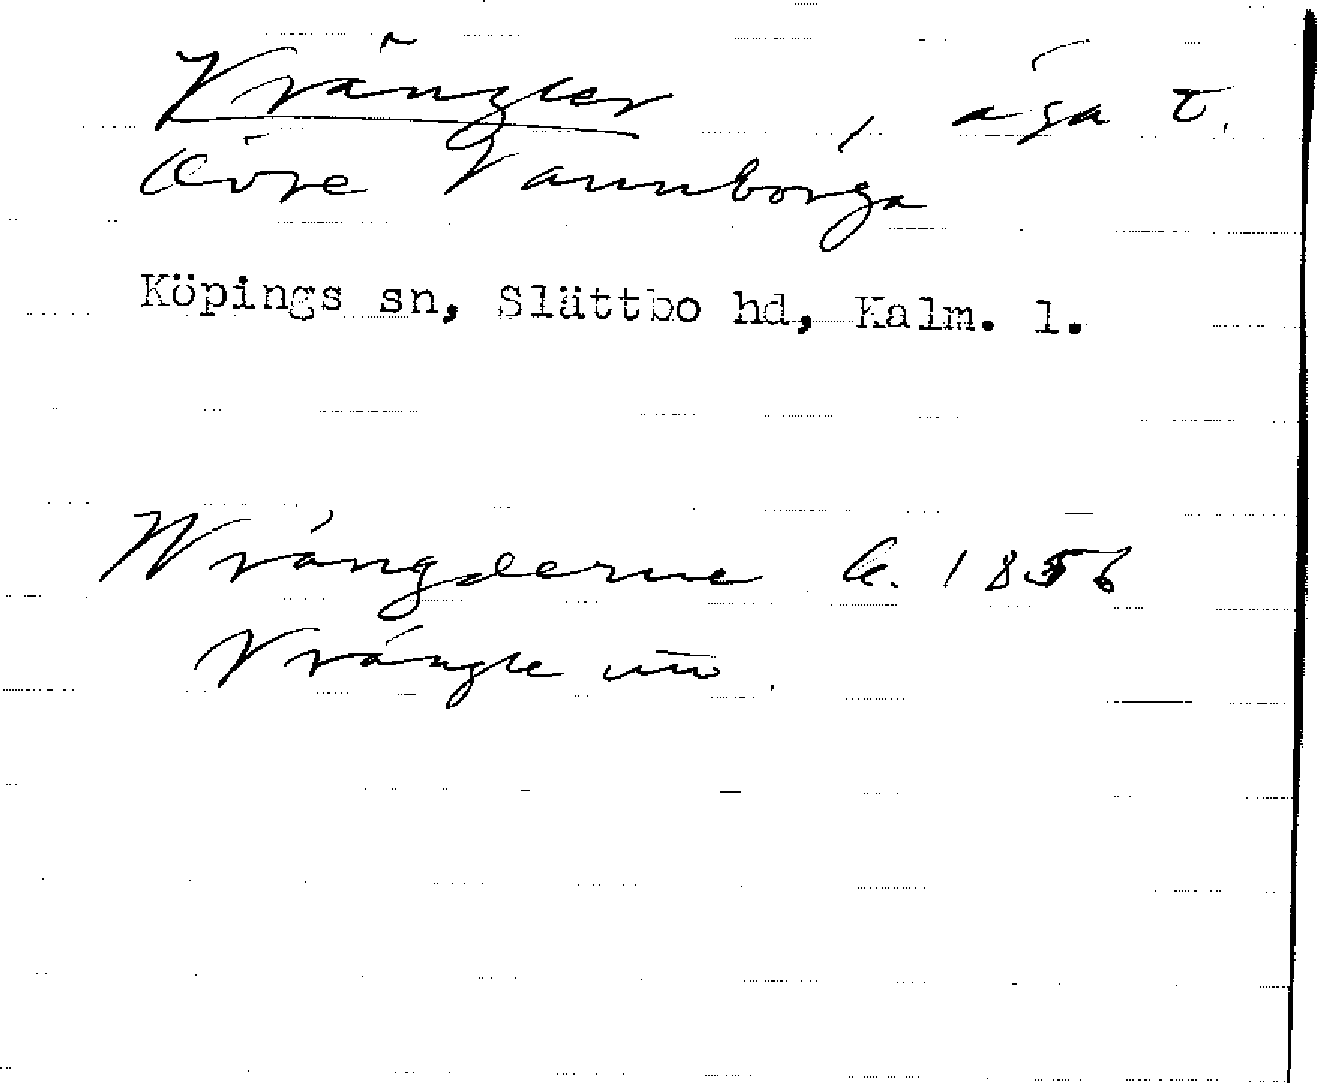 Vrängler, äga t.
Övre Vannborga
Köpings sn, Slättbo hd, Kalm. l.
Wrängderne k. 1856
Vrängle